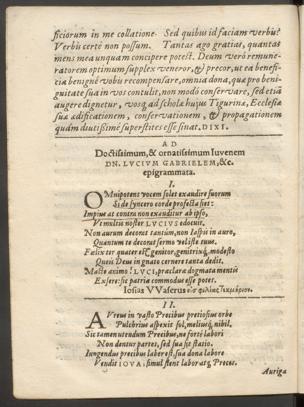 ficiorum in me collatione. Sed quibus id faciam verbis?
Verbis certè non possum. Tantas ago gratias, quantas
mens mea unquam concipere potest. Deum verò remune-
ratorem optimum supplex veneror, & precor, ut ea benefi-
cia benignè vobis recompensare, omnia dona, quæ pro beni-
gnitate sua in vos contulit, non modò conservare, sed etiã
augere dignetur, vosq; ad scholæ hujus Tigurinæ, Ecclesiæ
suæ ædificationem, conservationem, & propagationem
quàm diutissimè superstites esse sinat, DIXI.
AD
Doctissimum, & ornatissimum Iuvenem
DN. LVCIVM GABRIELEM, &c.
epigrammata.
I.
OMnipotens vocem solet exaudire suorum
Si de syncero corde profecta siet:
Impius at contra non exauditur ab ipso,
Ut multis noster LUCIUS edocuit.
Non aurum decorat tantùm, non laspis in auro,
Quantum te decorat sermo
Felix ter quater est, genitor, genitrixq; modesto
Queis Deus in gnato cernere tanta dedit.
Macte animo! LUCI, præclara dogmata mentis
Exsere: sic patriæ commodus esse potes.
Iosias VVaserus
II.
AUreus in vasto Precibus pretiosius orbe
Pulchrius aspexit sol, meliusq; nihil.
Sic tamen utendum Precibus, ne forti labori
Non dentur partes, sed sua sit statio.
Iungendus precibus labor est, sua dona labore
Vendit IOVA: simul stent labor atq; Preces.
Auriga